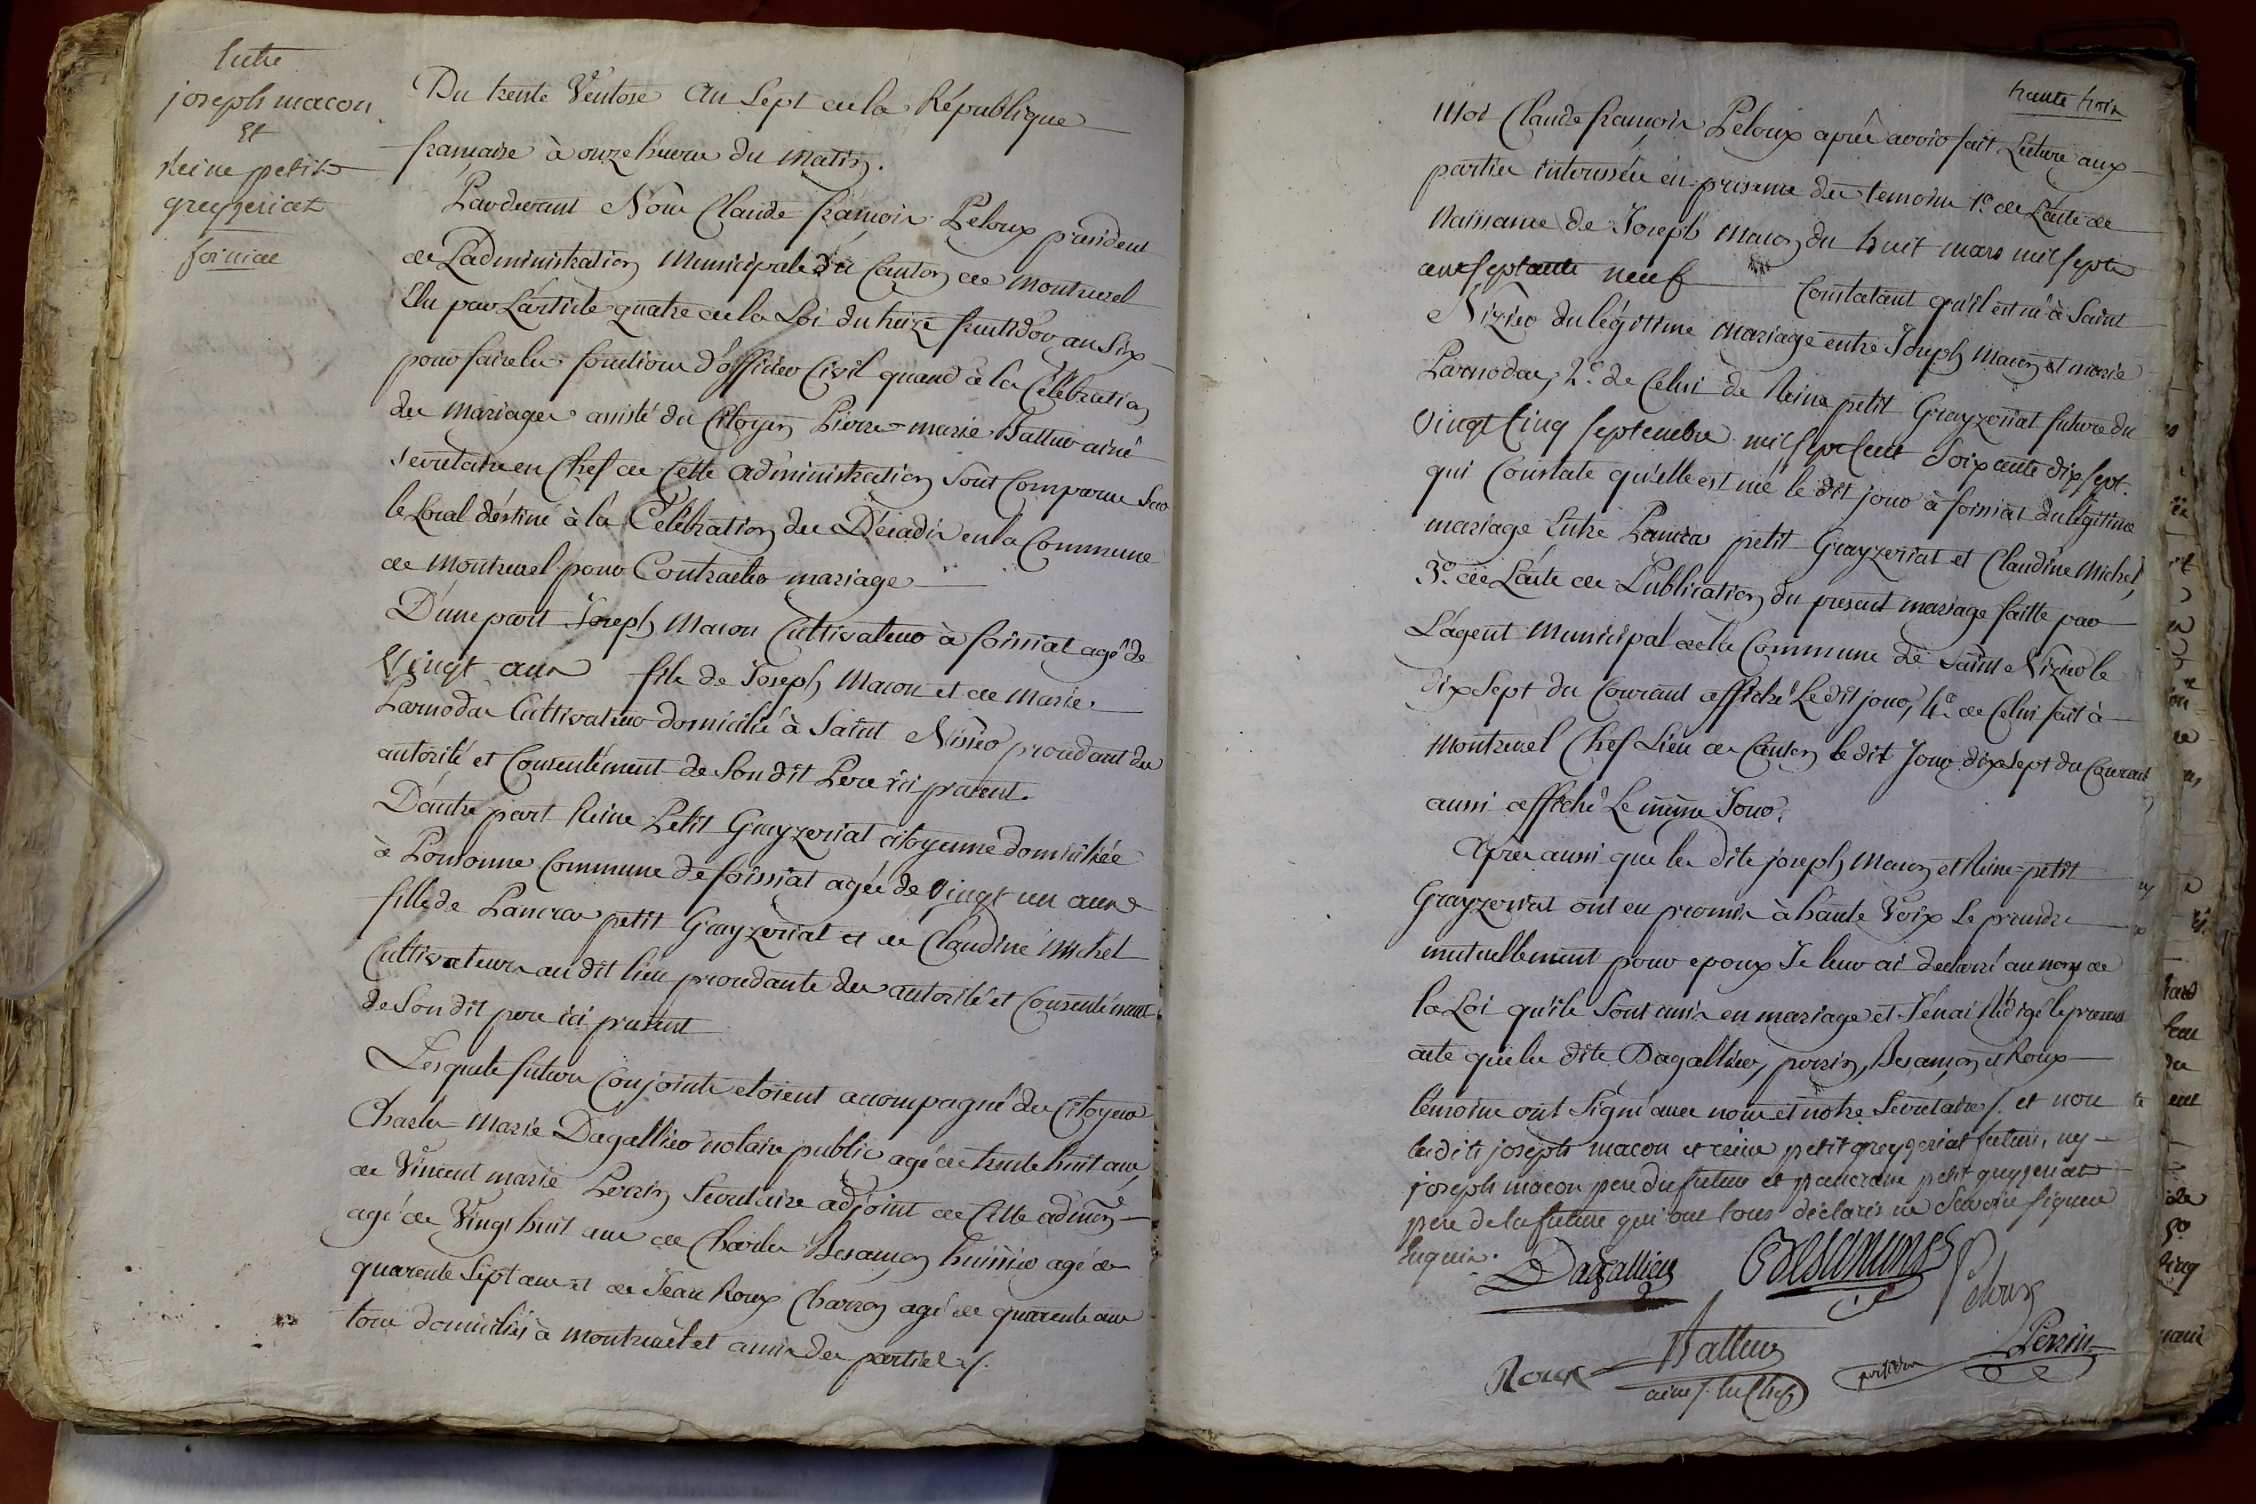 Entre
joseph macon
Et
Reine petit
greyzeriat
foissiat
Du trente Ventose an Sept de la République
française à onze heures du Matin.
Pardevant Nous Claude François Peloux président
de Ladministration Municipale du Canton de Montrevel
Elu par L'article quatre de la Loi du treize fructidor an Six
pour faire les fonctions d'officier Civil quand à la Célébration
des Mariages assisté du Citoyen Pierre-marie Batteur ainé
secretaire en Chef de Cette administration Sont Comparus Sur
le Local déstiné à la Célébration des Décadis en la Commune
de Montrevel pour Contracter mariage
D'une part Joseph Macon Cultivateur à foissiat agé de
Vingt ans fils de Joseph Macon et de Marie
Parnodas Cultivateur domicilié à Saint Nisier procedant des
autorité et Consentement de Son dit Pere ici présent.
D'autre part Reine Petit Grayzeriat citoyenne domiciliée
à Ponsonne Commune de foissiat agée de Vingt un ans
fille de Pancras petit Grayzeriat et de Claudine Michel
Cultivateurs au dit lieu procedante des autorité et Consentément
de Son dit pere ici présent
Lesquels futurs Conjoints etoient accompagné des Citoyens
Charles Marie Dagallier notaire public agé de trente huit ans,
de Vincent marie Perrin Secretaire adjoint de Cette admōn
agé de Vingt huit ans de Charles Besançon huissier agé de
quarente Sept ans et de Jean Roux Charron agé de quarente ans
tous domiciliés à Montrevel et amis des parties /.
trente trois
Moi Claude françois Peloux après avoir fait Lecture aux
parties interessées en présence des temoins 1.º de L'acte de
Naissance de Joseph Macon du huit mars mil sept
cent septante neuf Constatant qu'il est né à Saint
Nizier du légitime mariage entre Joseph Macon et marie
Parnodas, 2.º de Celui de Reine petit Grayzeriat future du
Vingt Cinq septembre mil sept Cent Soixante dix sept.
qui Constate qu'elle est née le dit jour à foissiat du légitime
mariage Entre Pancras petit Grayzeriat et Claudine Michel,
3.º de L'acte de Publication du present mariage faitte par
L'agent Municipal de la Commune de Saint Nizier le
dix Sept du Courant affiché Le dit jour, 4.º de Celui fait à
Montrevel Chef Lieu de Canton le dit Jour dix Sept du Courant
aussi affiché Le même Jour.
Après aussi que les dits joseph Macon et Reine petit
Grayzeriat ont eu promis à haute Voix Se prendre
mutuellement pour epoux Je leur ai declaré au nom de
la Loi qu'ils Sont unis en mariage et J'en ai Rédigé le présent
acte que les dits Dagallier, perrin, Besançon et Roux
témoins ont Signé avec nous et notre Secretaire /. et non
lesdits joseph macon et reine petit greyzeriat futurs, ny
joseph macon pere du futur et pancrace petit greyzeriat
pere de la future qui ont tous déclarés ne Savoir signer
Enquis.
Dagallier Besançon Peloux
Roux Batteur Perrin
ainé S. en Chef